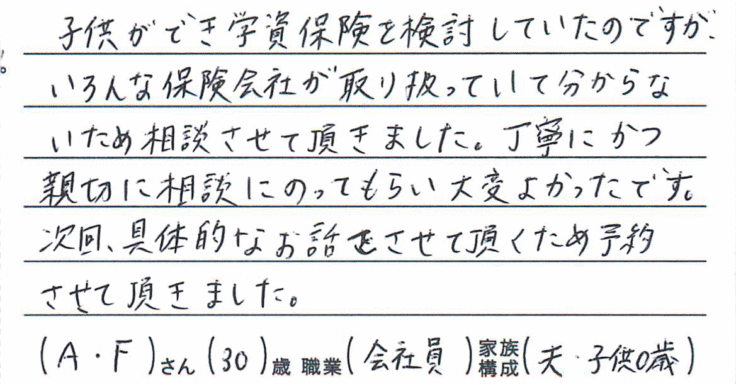 子供ができ学資保険を検討していたのですが、
いろんな保険会社が取り扱っていて分からな
いため相談させて頂きました。丁寧にかつ
親切に相談にのってもらい大変よかったです。
次回、具体的なお話をさせて頂くため予約
させて頂きました。
(A・F)さん(30)歳 職業(会社員)家族構成(夫・子供0歳)